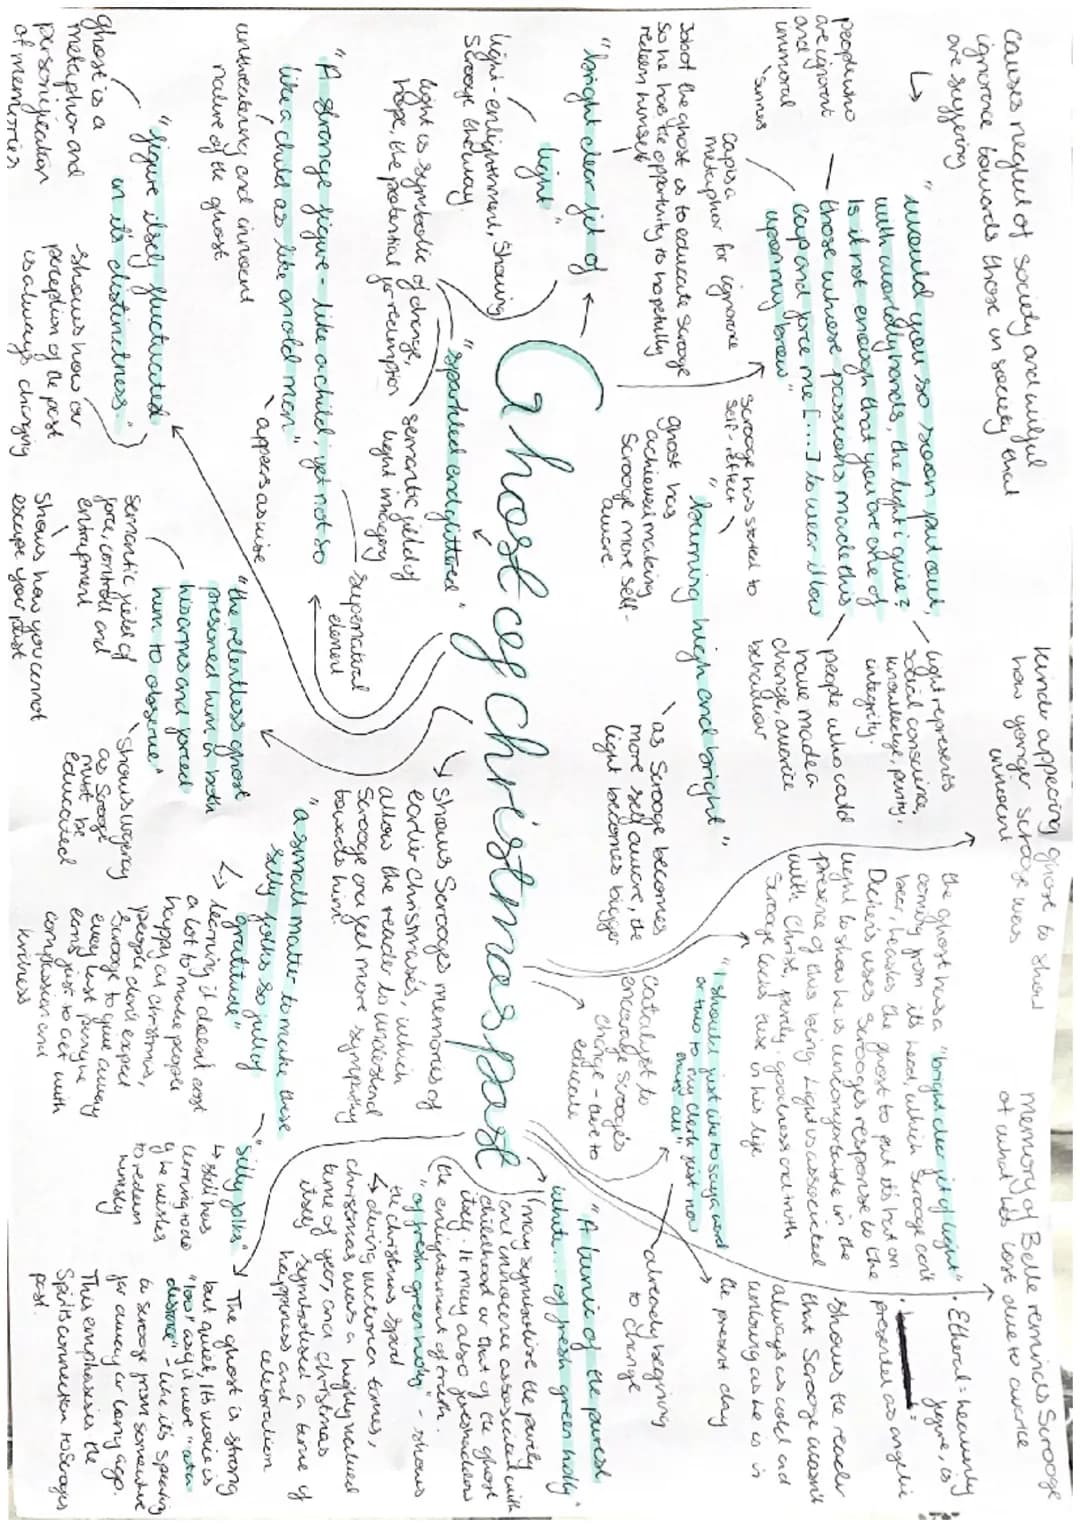 causes neglect of society and wilful
ignorance towards those in society that
are suffering
people who
are ignorant
and
immoral
'sinners
"would you so soon put out,
with worldly hands, the light i give?
Is it not enough that you are one of
those whose passions made this
cap and force me [...] to wear it low
upon my brow"
light represents
social conscience,
knowledge, purity,
integrity.
people who could
have made a
change, avarice
behaviour
cap is a
metaphor for ignorance
Job of the ghost is to educate Scrooge
so he has the opportunity to hopefully
redeem himself
Scrooge has started to
self-reflect
"burning high and bright"
ghost has
achieved making
Scrooge more self-
aware
as Scrooge becomes
more self aware, the
light becomes bigger
"bright clear jet of
light"
light - enlightnment, showing
Scrooge the way.
light is symbolic of change,
hope, the potential for redemption
"sparkled and glittered"
semantic field of
light imagery
"A strange figure - like a child; yet not so
like a child as like an old man"
unthreatening and innocent
nature of the ghost
appears as wise
supernatural
element
"figure itself fluctuated
in it's distinctness"
ghost is a
metaphor and
personification
of memories
shows how our
perception of the past
is always changing
"the relentless ghost
presioned him in both
his arms and forced
him to observe"
semantic field of
force, controll and
entrapment
shows how you cannot
escape your past
shows urgency
as Scrooge
must be
educated
Ghost of christmas past
kinda appearing ghost to show
how yonger scrooge was
innocent
the ghost has a "bright clear jet of light"
coming from it's head, which Scrooge can't
bear, he asks the ghost to put it's hat on
Dickens uses Scrooges response to the
light to show he is uncomfortable in the
presence of this being. Light is associated
with Christ, purity, goodness and truth
Scrooge lacks these in his life
"I should just like to say a word
or two to my clerk just now
thats all"
already begining
to change
catalyst to
encourage Scrooge's
change - due to
educate
Memory of Belle reminds Scrooge
of what he's lost due to avarice
• Ethereal = heavenly
figure, is
presented as angelic
shows the reader
that Scrooge wasn't
always as cold and
unloving as he is in
the present day
shows Scrooges memories of
earlier christmases, which
allow the reader to understand
Scrooge and feel more sympathy
towards him.
"A tunic of the purest
white... of fresh green holly"
may symbolise the purity
and innocence associated with
childhood or that of the ghost
itself. It may also foreshadow
the enlightnment of truth.
"of fresh green holly" - shows
the christmas spirit
↳ during victorian times,
christmas was a highly valued
time of year, and christmas
itself symbolised a time of
happiness and
celebration
"a small matter to make these
silly folks so full of
gratitude"
↳ learning it doesnt cost
a lot to make people
happy at christmas,
people don't expect
Scrooge to give away
every last penny he
earns just to act with
compassion and
kindness
"silly folks"
↳ still has
learning to do
if he wishes
to redeem
himself
The ghost is strong
but quiet, Its voice is
"low" as if it were "at a
distance" - like it's speaking
to scrooge from somewhere
far away or long ago.
This emphasises the
Spirits connection to Scrooges
past.